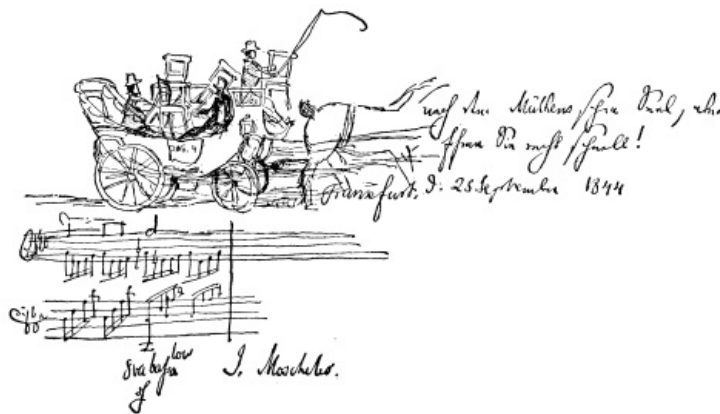 nach dem Mülhens'schen Saal, aber
fahren Sie recht schnell!
Frankfurt, d: 25 September 1844
8va bassa
low
sf
I. Moscheles.